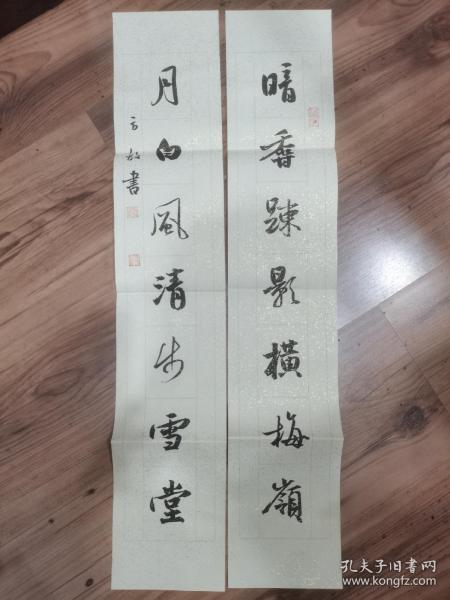 暗香踈影橫梅嶺
月白風清步雪堂
方敏書
孔夫子旧书网
www.kongfz.com